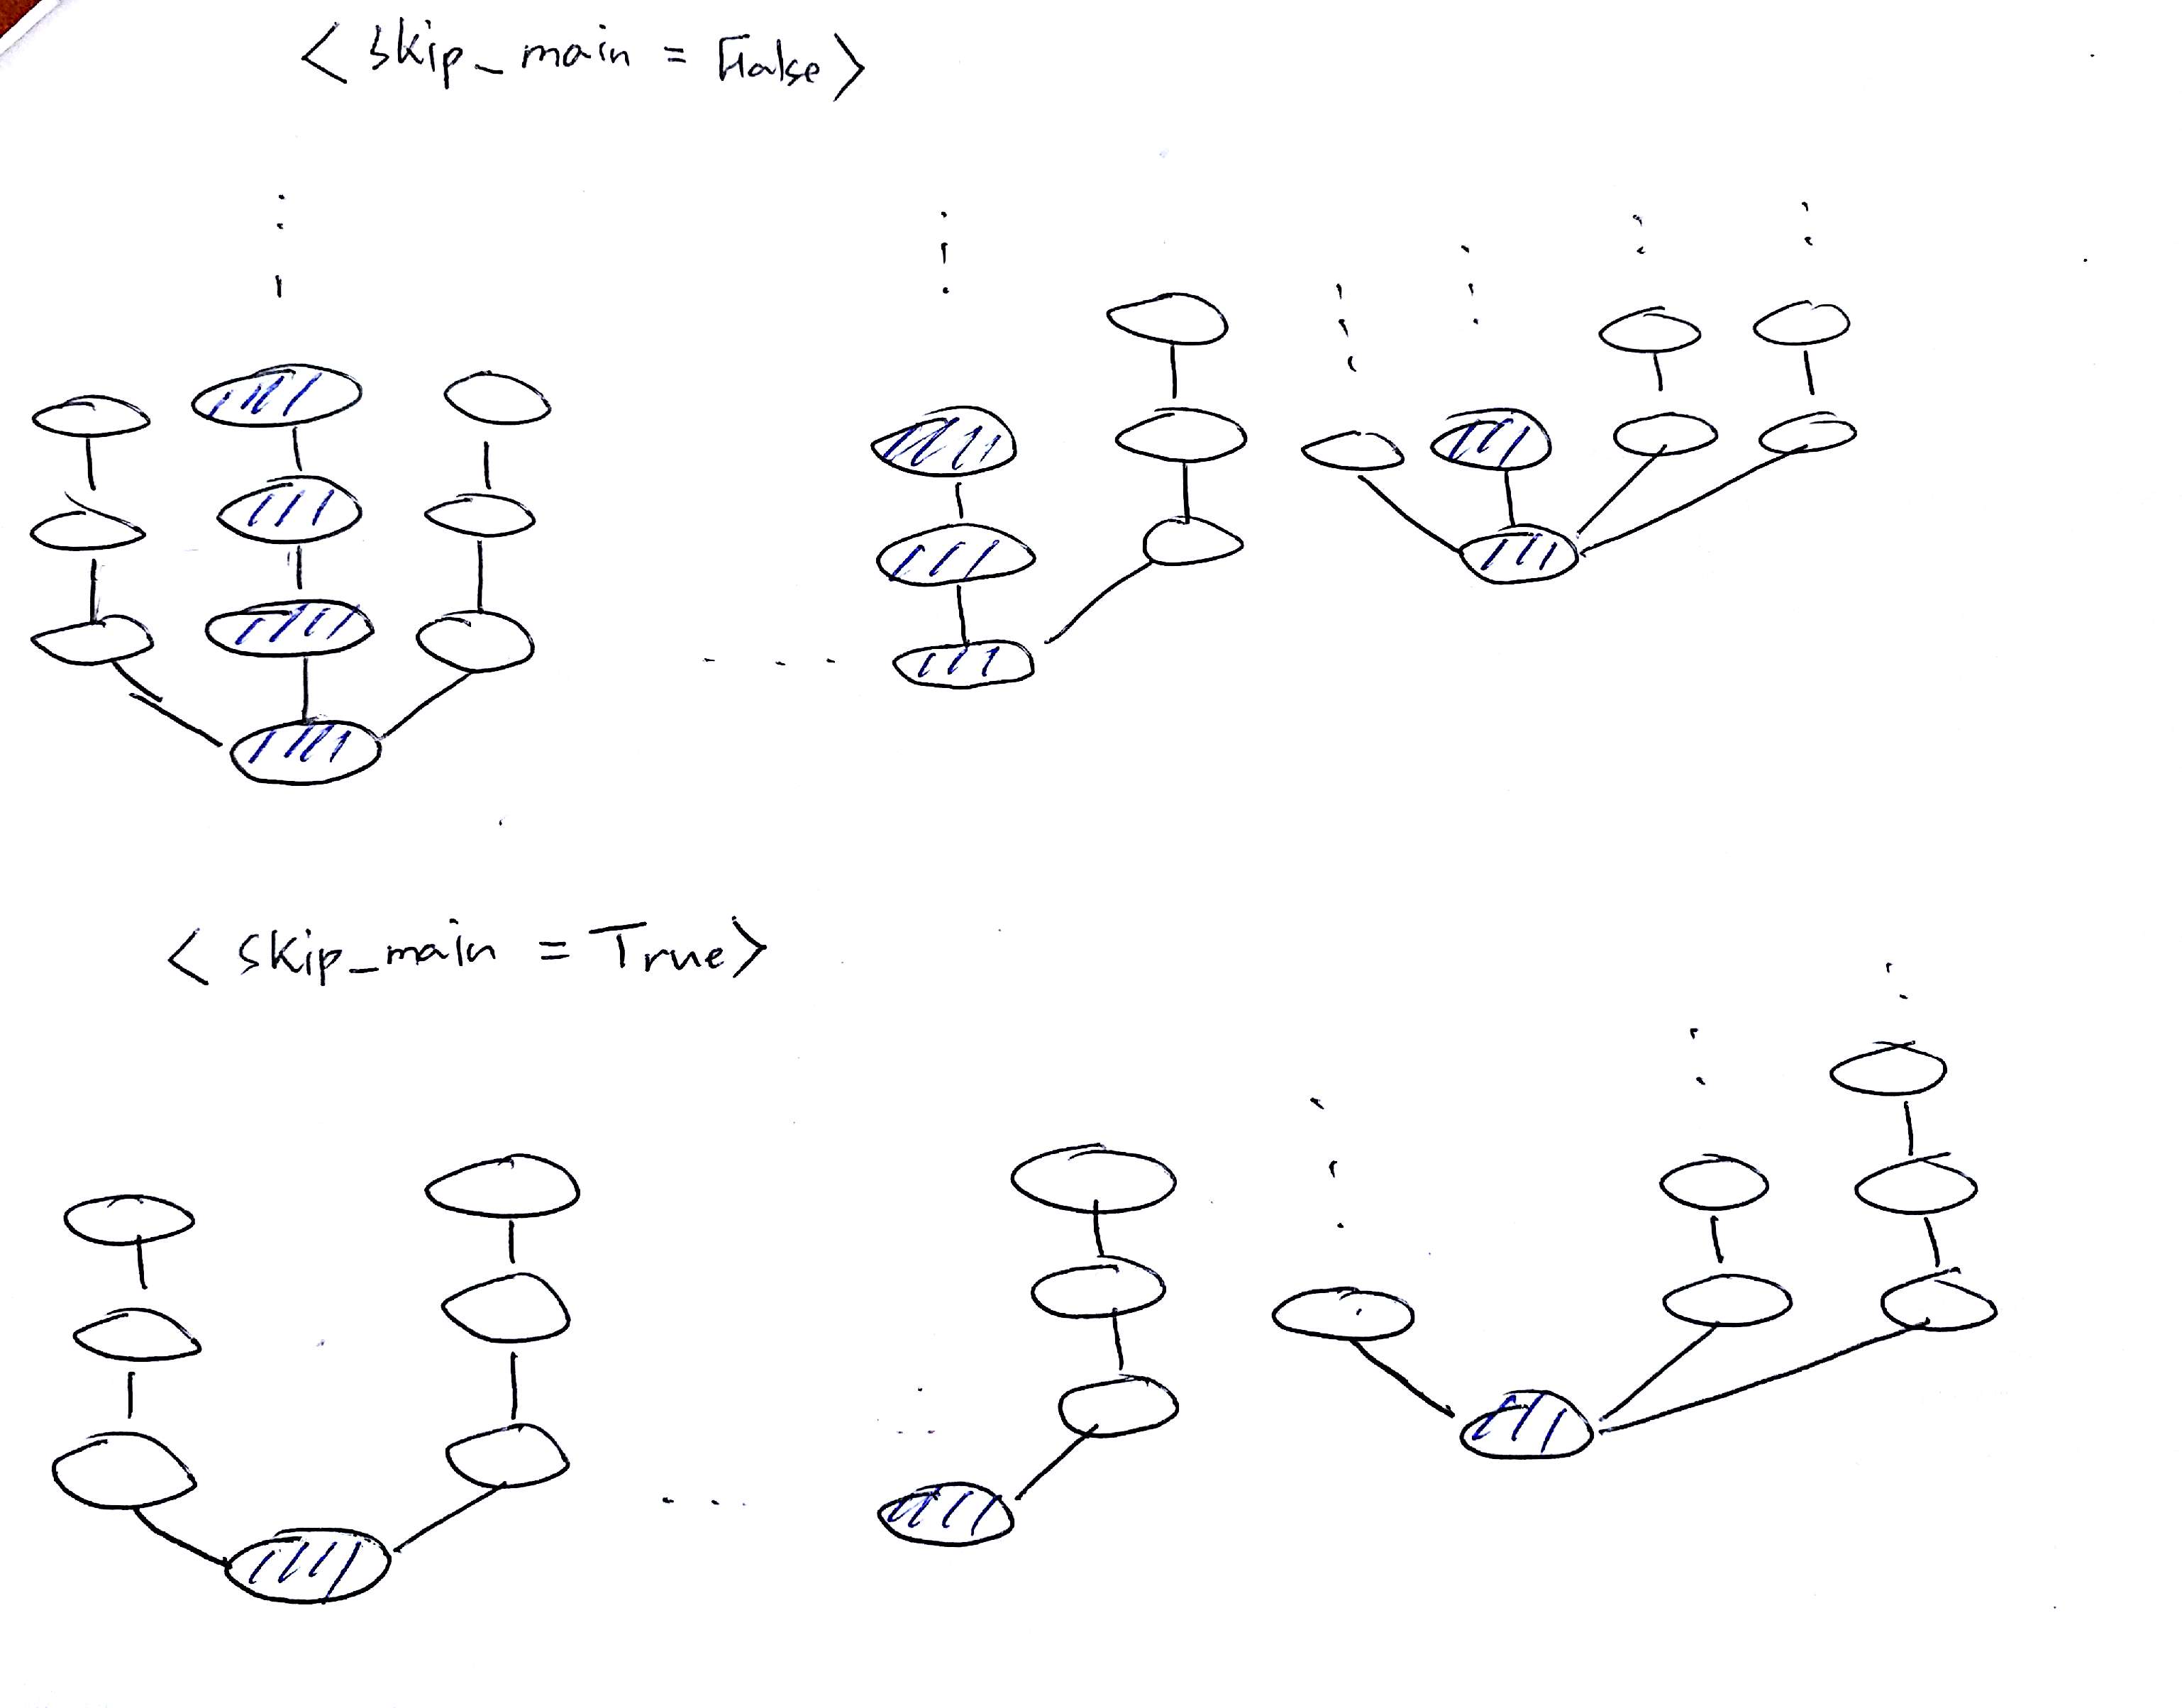 < skip_main = False>
< skip_main = True>